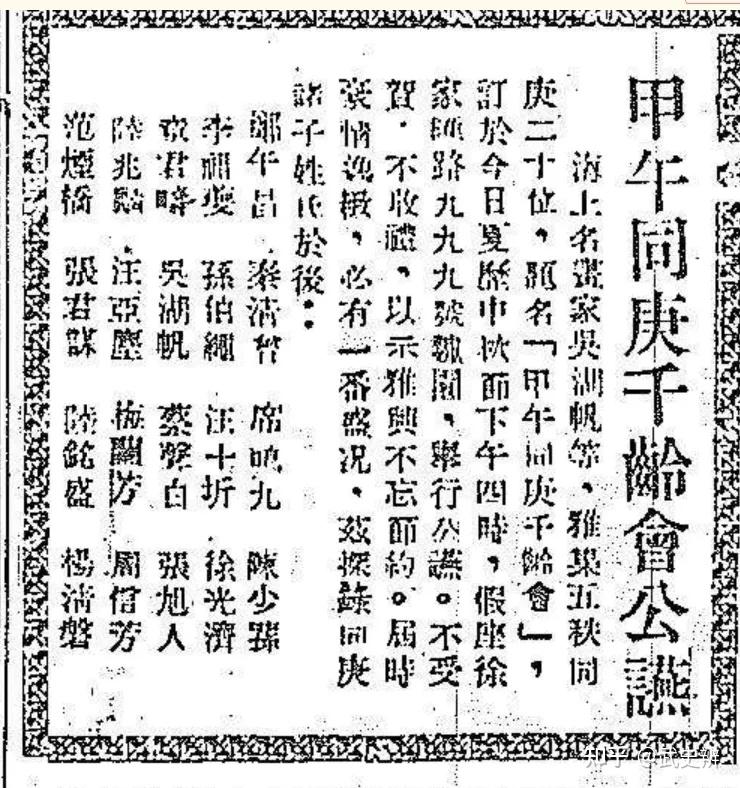 甲午同庚千齡會公讌
海上名畫家吳湖帆等,雅集五秩同
庚二十位,題名「甲午同庚千齡會」,
訂於今日夏歷中秋節下午四時,假座徐
家匯路九九九號魏園,舉行公讌。不受
賀,不收禮,以示雅興不忘節約。屆時
豪情逸緻,必有一番盛况,茲探錄同庚
諸子姓氏於後:
鄭午昌 秦清曾 席鳴九 陳少蓀
李祖夔 孫伯繩 汪士圻 徐光濟
章君疇 吳湖帆 蔡聲白 張旭人
陸兆麟 汪亞塵 梅蘭芳 周信芳
范煙橋 張君謀 陸銘盛 楊清磐
知乎 @武史辨